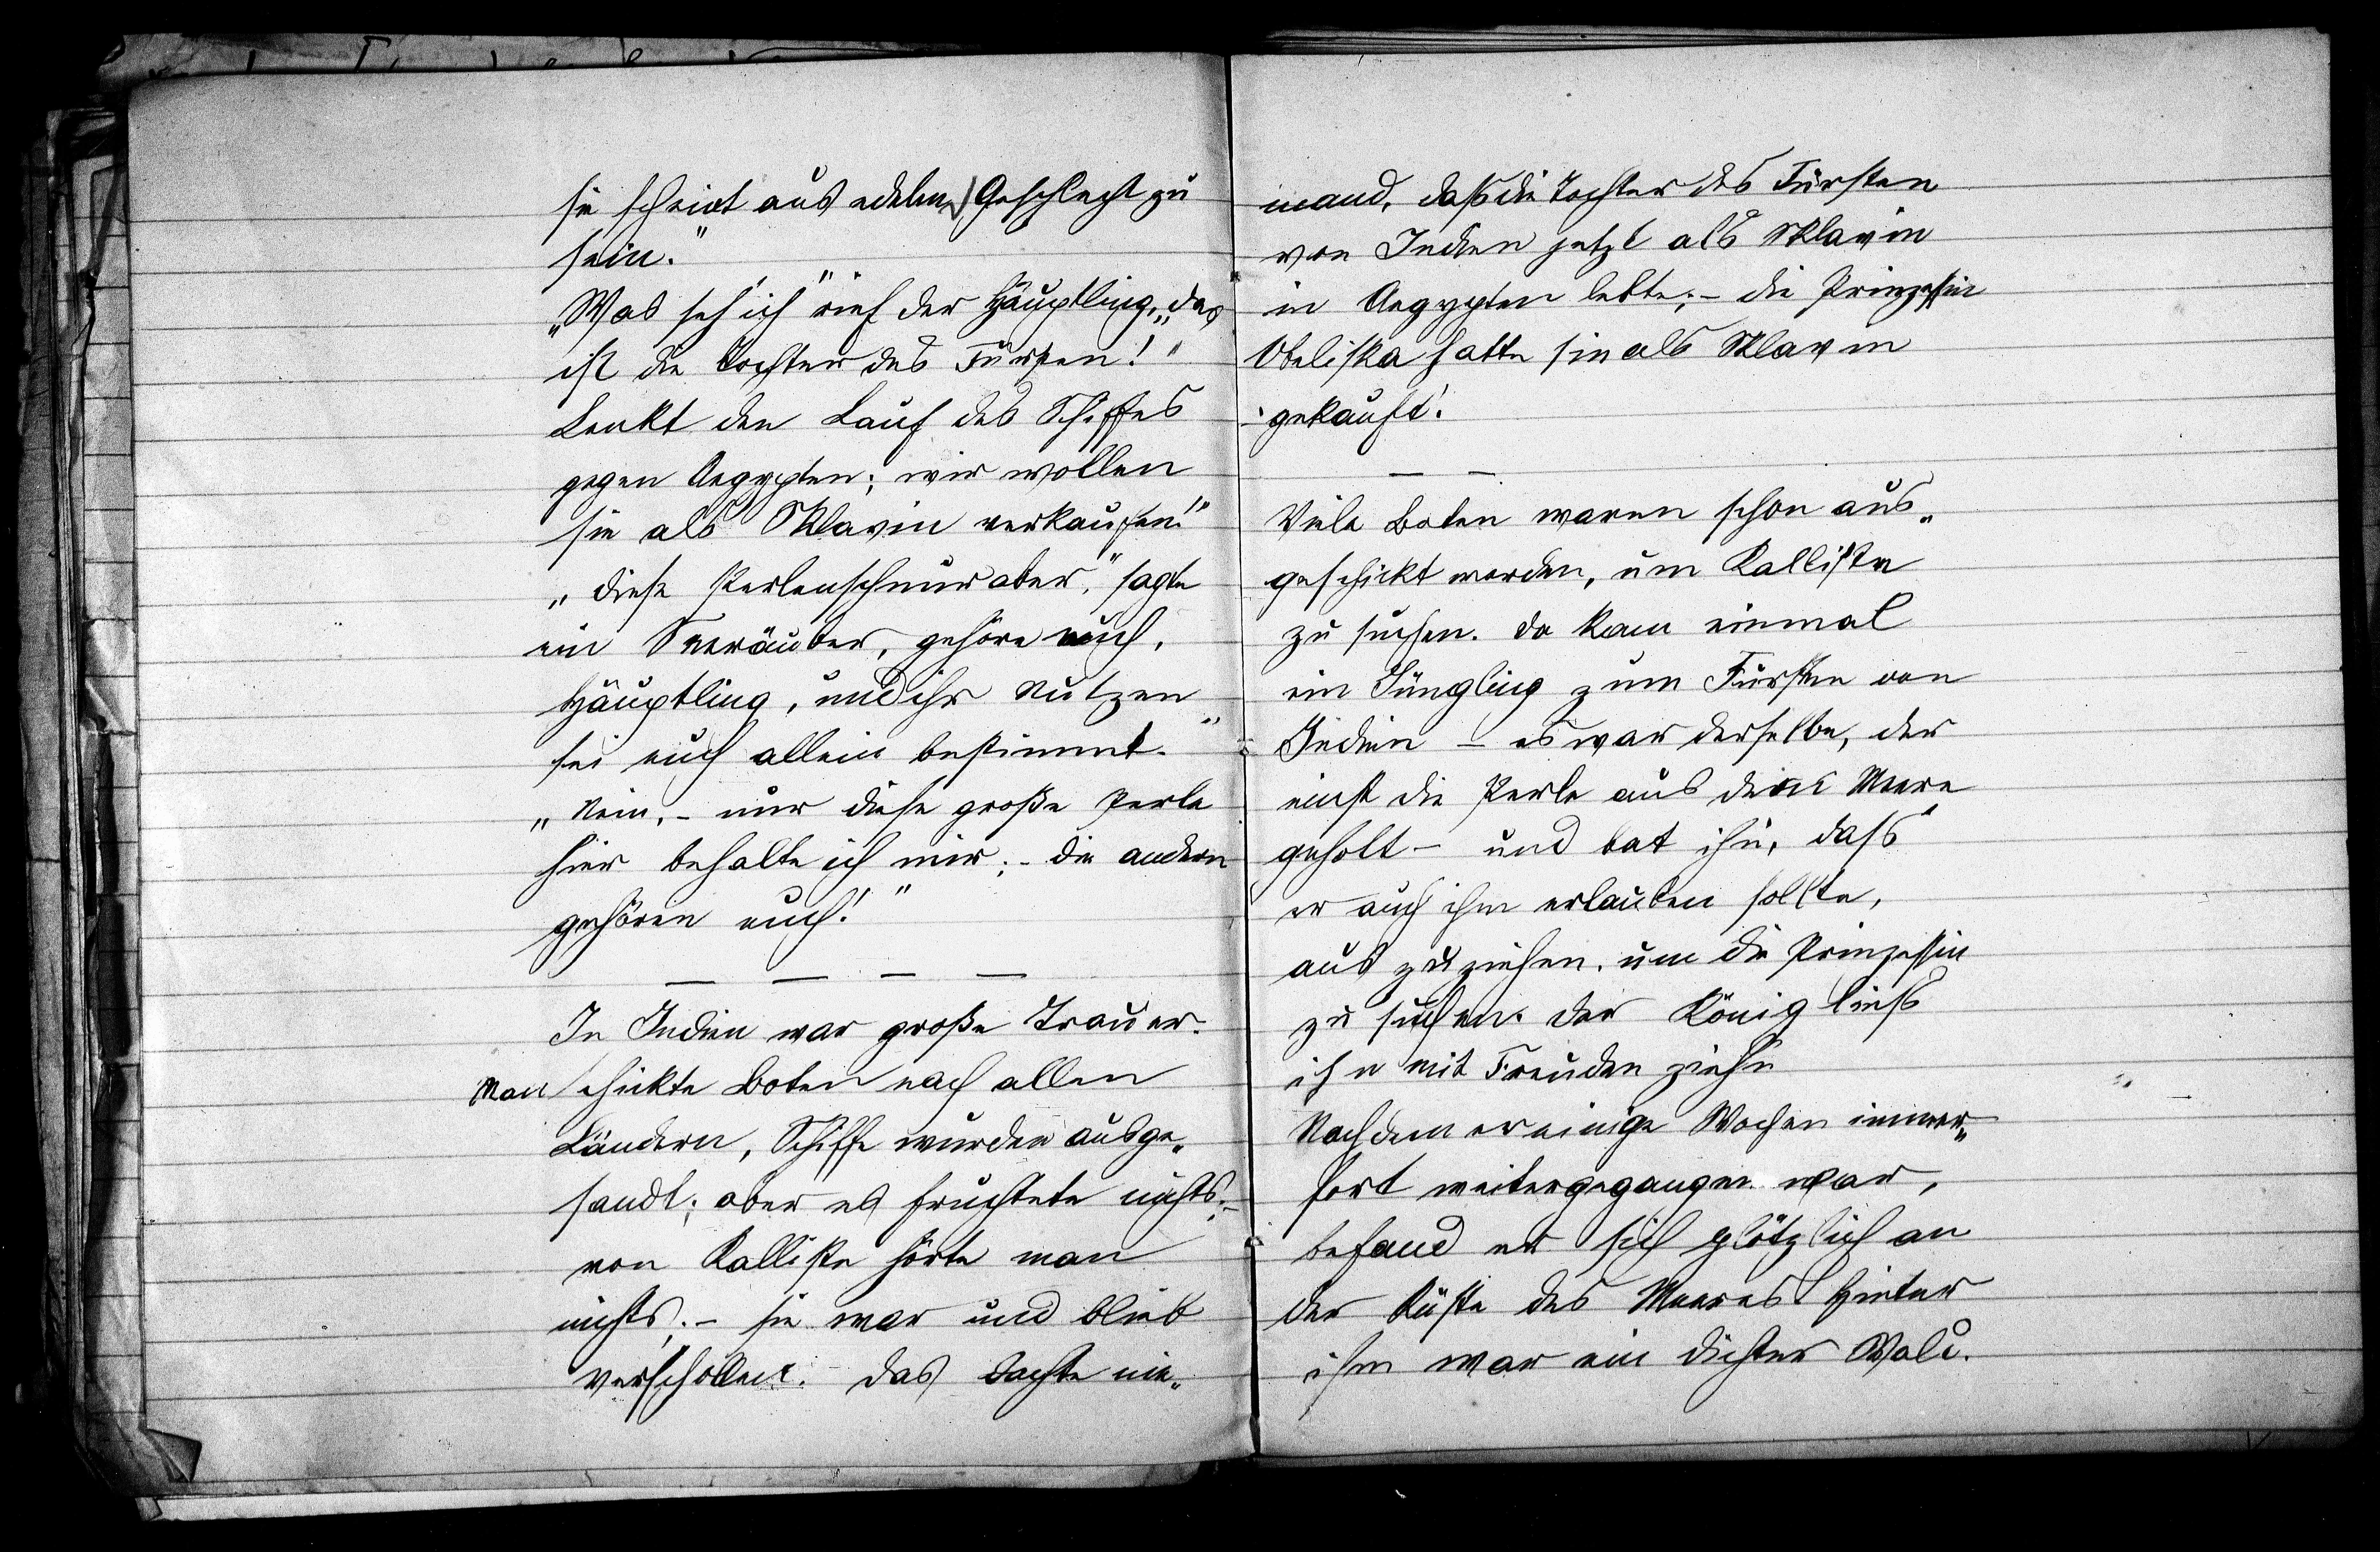 sie scheint aus edelem Geschlecht zu
sein."
„Was seh' ich" rief der Häuptling, „das
ist die Tochter des Fürsten!"
Lenkt den Lauf des Schiffes
gegen Aegypten; wir wollen
sie als Sklavin verkaufen!"
„diese Perlenschnur aber," sagte
ein Seeräuber, gehöre euch,
Häuptling, und ihr Nutzen
sei euch allein bestimmt."
„Nein, – nur diese große Perle
hier behalte ich mir; – die andern
gehören euch!"
— — — —
In Indien war große Trauer.
Man schickte Boten nach allen
Ländern, Schiffe wurden ausge„
sandt; aber es fruchtete nichts; –
von Kalliste hörte man
nichts; – sie war und blieb
verschollen. – Das dachte nie„
mand, daß die Tochter des Fürsten
von Indien jetzt als Sklavin
in Aegypten lebte; – die Prinzessin
Obeliska hatte sie als Sklavin
gekauft!
— —
Viele Boten waren schon aus„
geschickt worden, um Kalliste
zu suchen. Da kam einmal
ein Jüngling zum Fürsten von
Indien – es war derselbe, der
einst die Perle aus dem Meere
geholt – und bat ihn, dass
er auch ihm erlauben sollte,
aus zu ziehen, um die Prinzessin
zu suchen. Der König liess
ihn mit Freuden ziehn
Nachdem er einige Wochen immer„
fort weitergegangen war,
befand er sich plötzlich an
der Küste des Meeres. Hinter
ihm war ein dichter Wald.